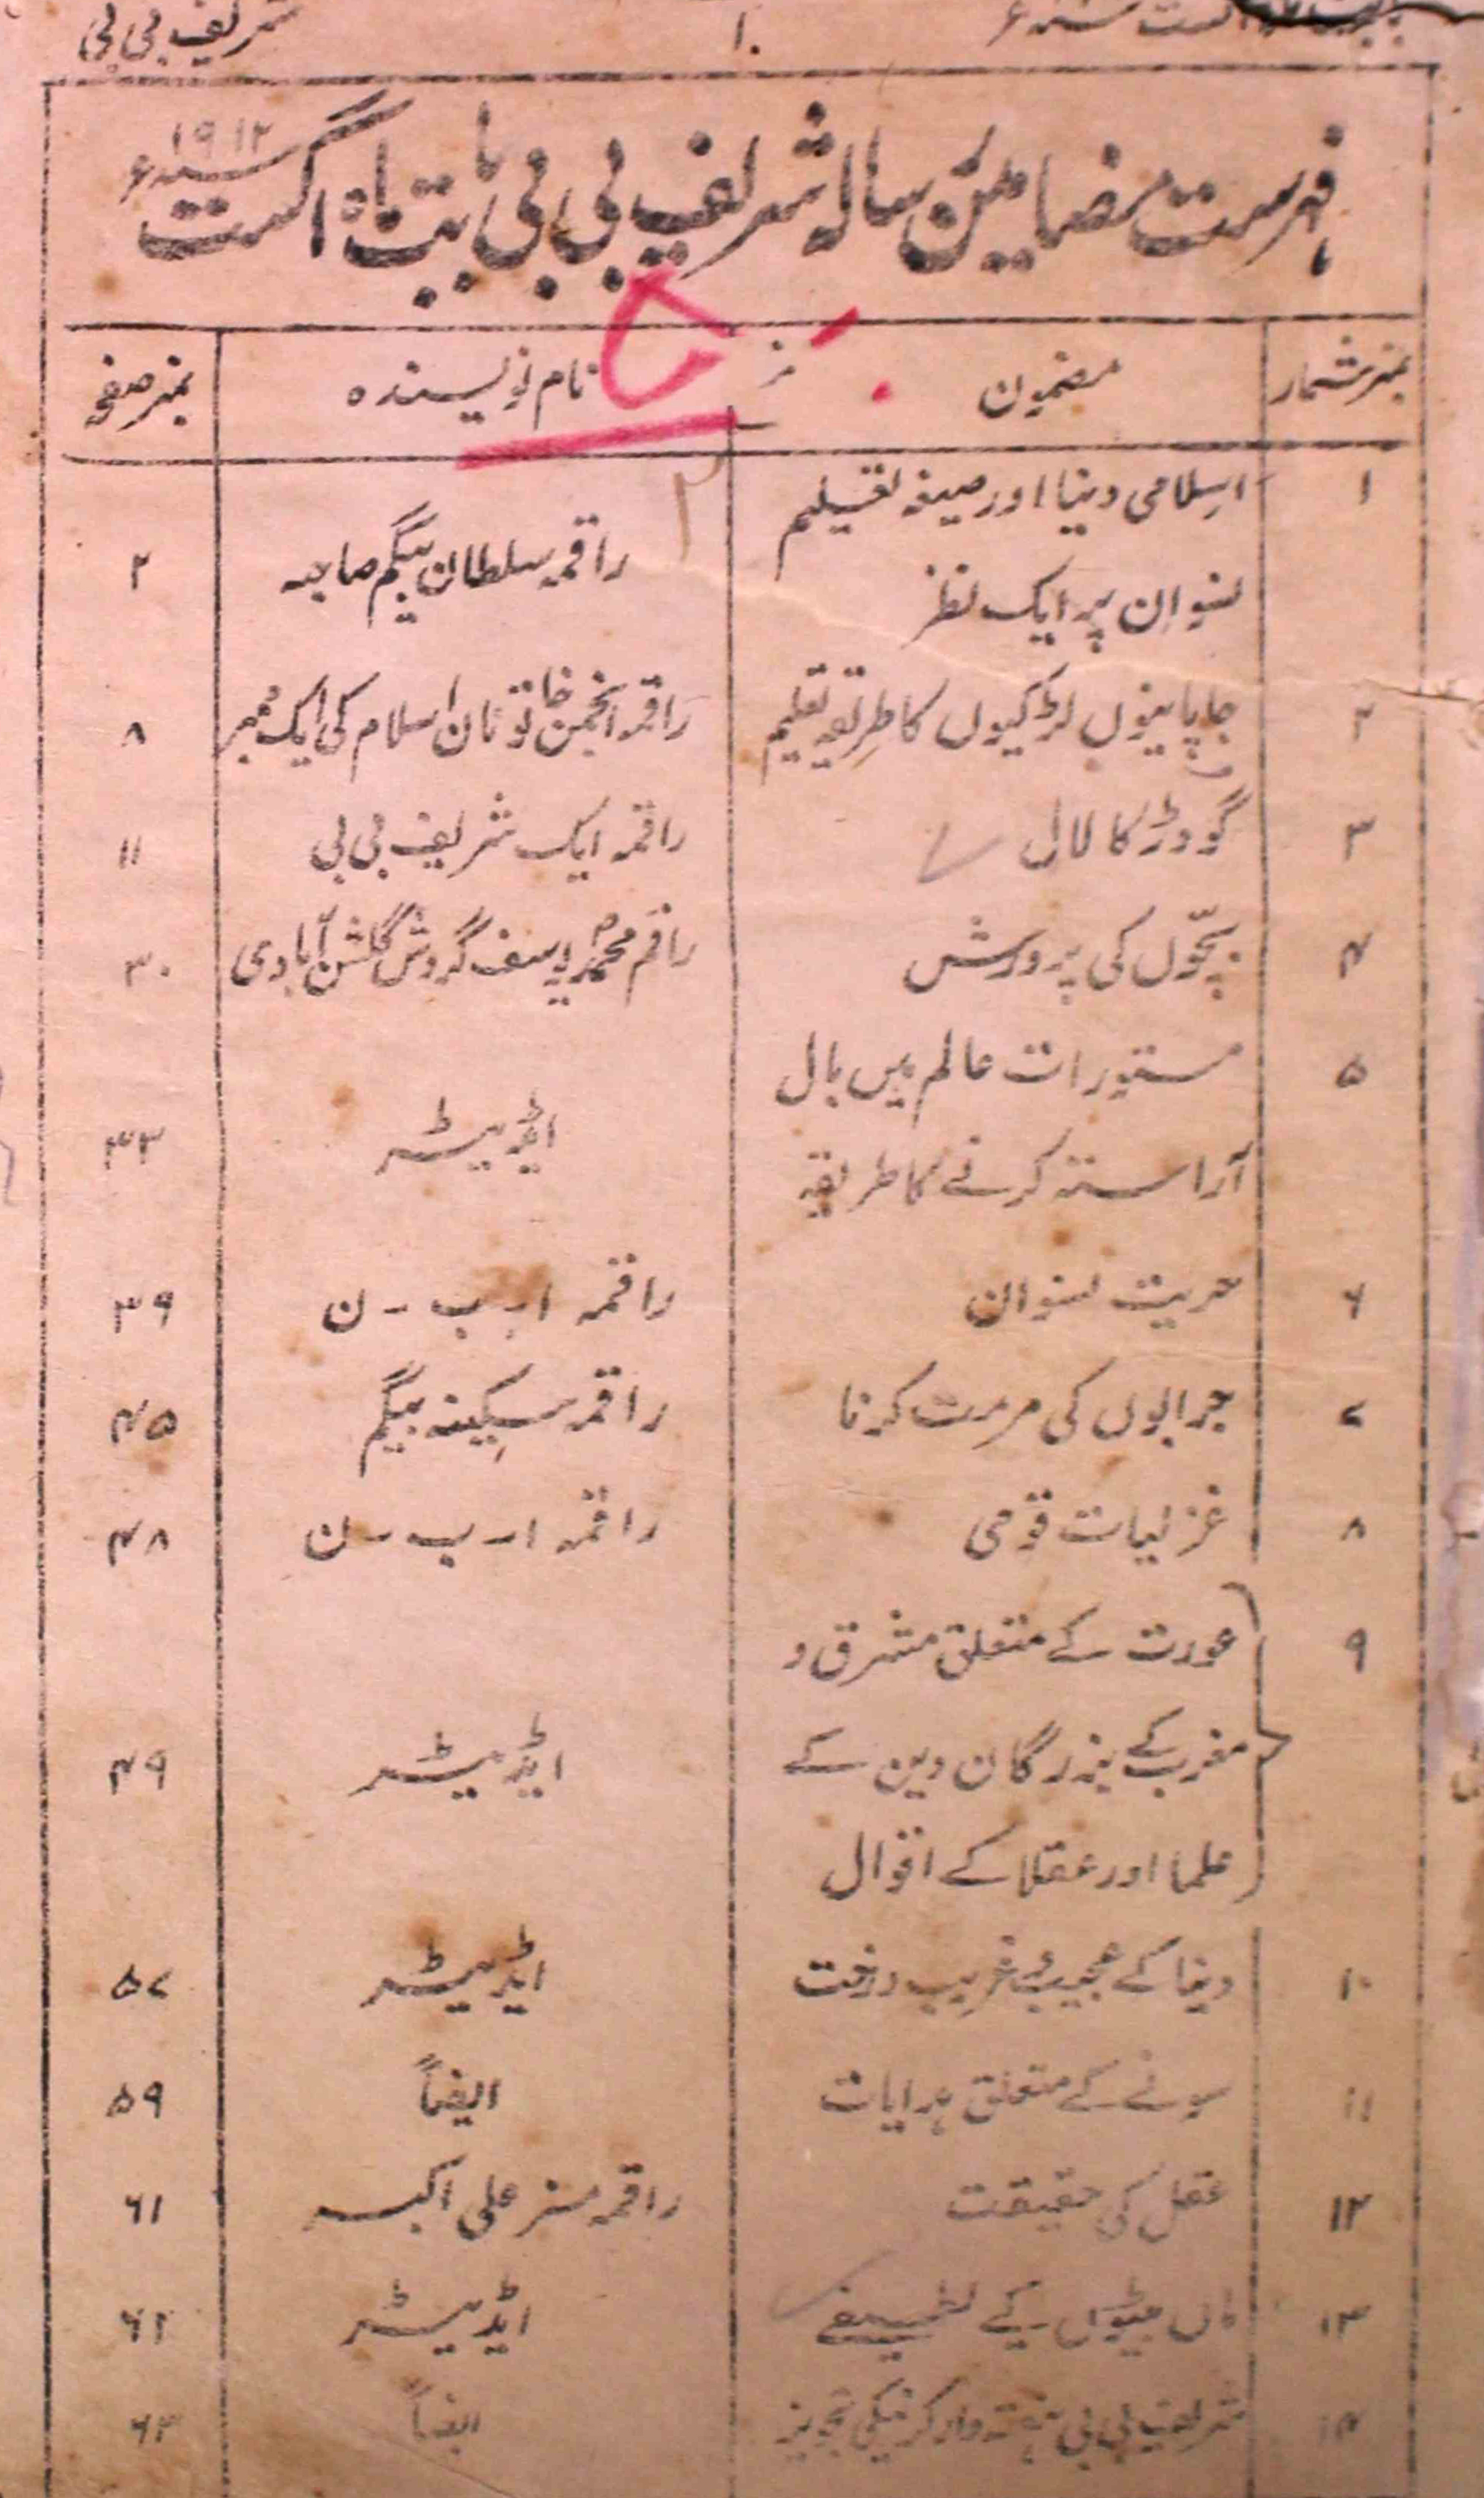 شریف بی بی
۱
فہرست مضامین رسالہ شریف بی بی بابت ماہ اگست ۱۹۱۲ء
نمبر شمار مضمون نام نویسندہ نمبر صفحہ
۱ اسلامی دنیا اور صیغہ تعلیم
نسواں پر ایک نظر راقمہ سلطان بیگم صاحبہ ۲
۲ جاپانیوں لڑکیوں کا طریقہ تعلیم راقمہ انجمن خاتونان اسلام کی ایک ممبر ۸
۳ گودڑ کا لال راقمہ ایک شریف بی بی ۱۱
۴ بچّوں کی پرورش راقم محمد یوسف گردش گلشن آبادی ۳۰
۵ مستورات عالم میں بال
آراستہ کرنے کا طریقہ ایڈیٹر ۳۳
۶ حریت نسواں راقمہ ا۔ ب ۔ ن ۳۹
۷ جرابوں کی مرمت کرنا راقمہ سکینہ بیگم ۴۵
۸ غزلیات قومی راقمہ ا۔ ب ۔ ن ۴۸
۹ عورت کے متعلق مشرق و
مغرب کے بزرگان دین کے ایڈیٹر ۴۹
علما اور عقلا کے اقوال
۱۰ دنیا کے عجیب و غریب درخت ایڈیٹر ۵۷
۱۱ سونے کے متعلق ہدایات ایضاً ۵۹
۱۲ عقل کی حقیقت راقمہ مسز علی اکبر ۶۱
۱۳ ماں بیٹوں کے لطیفے ایڈیٹر ۶۲
۱۴ شریف بی بی ہفتہ وار کرنیکی تجویز ایضاً ۶۳